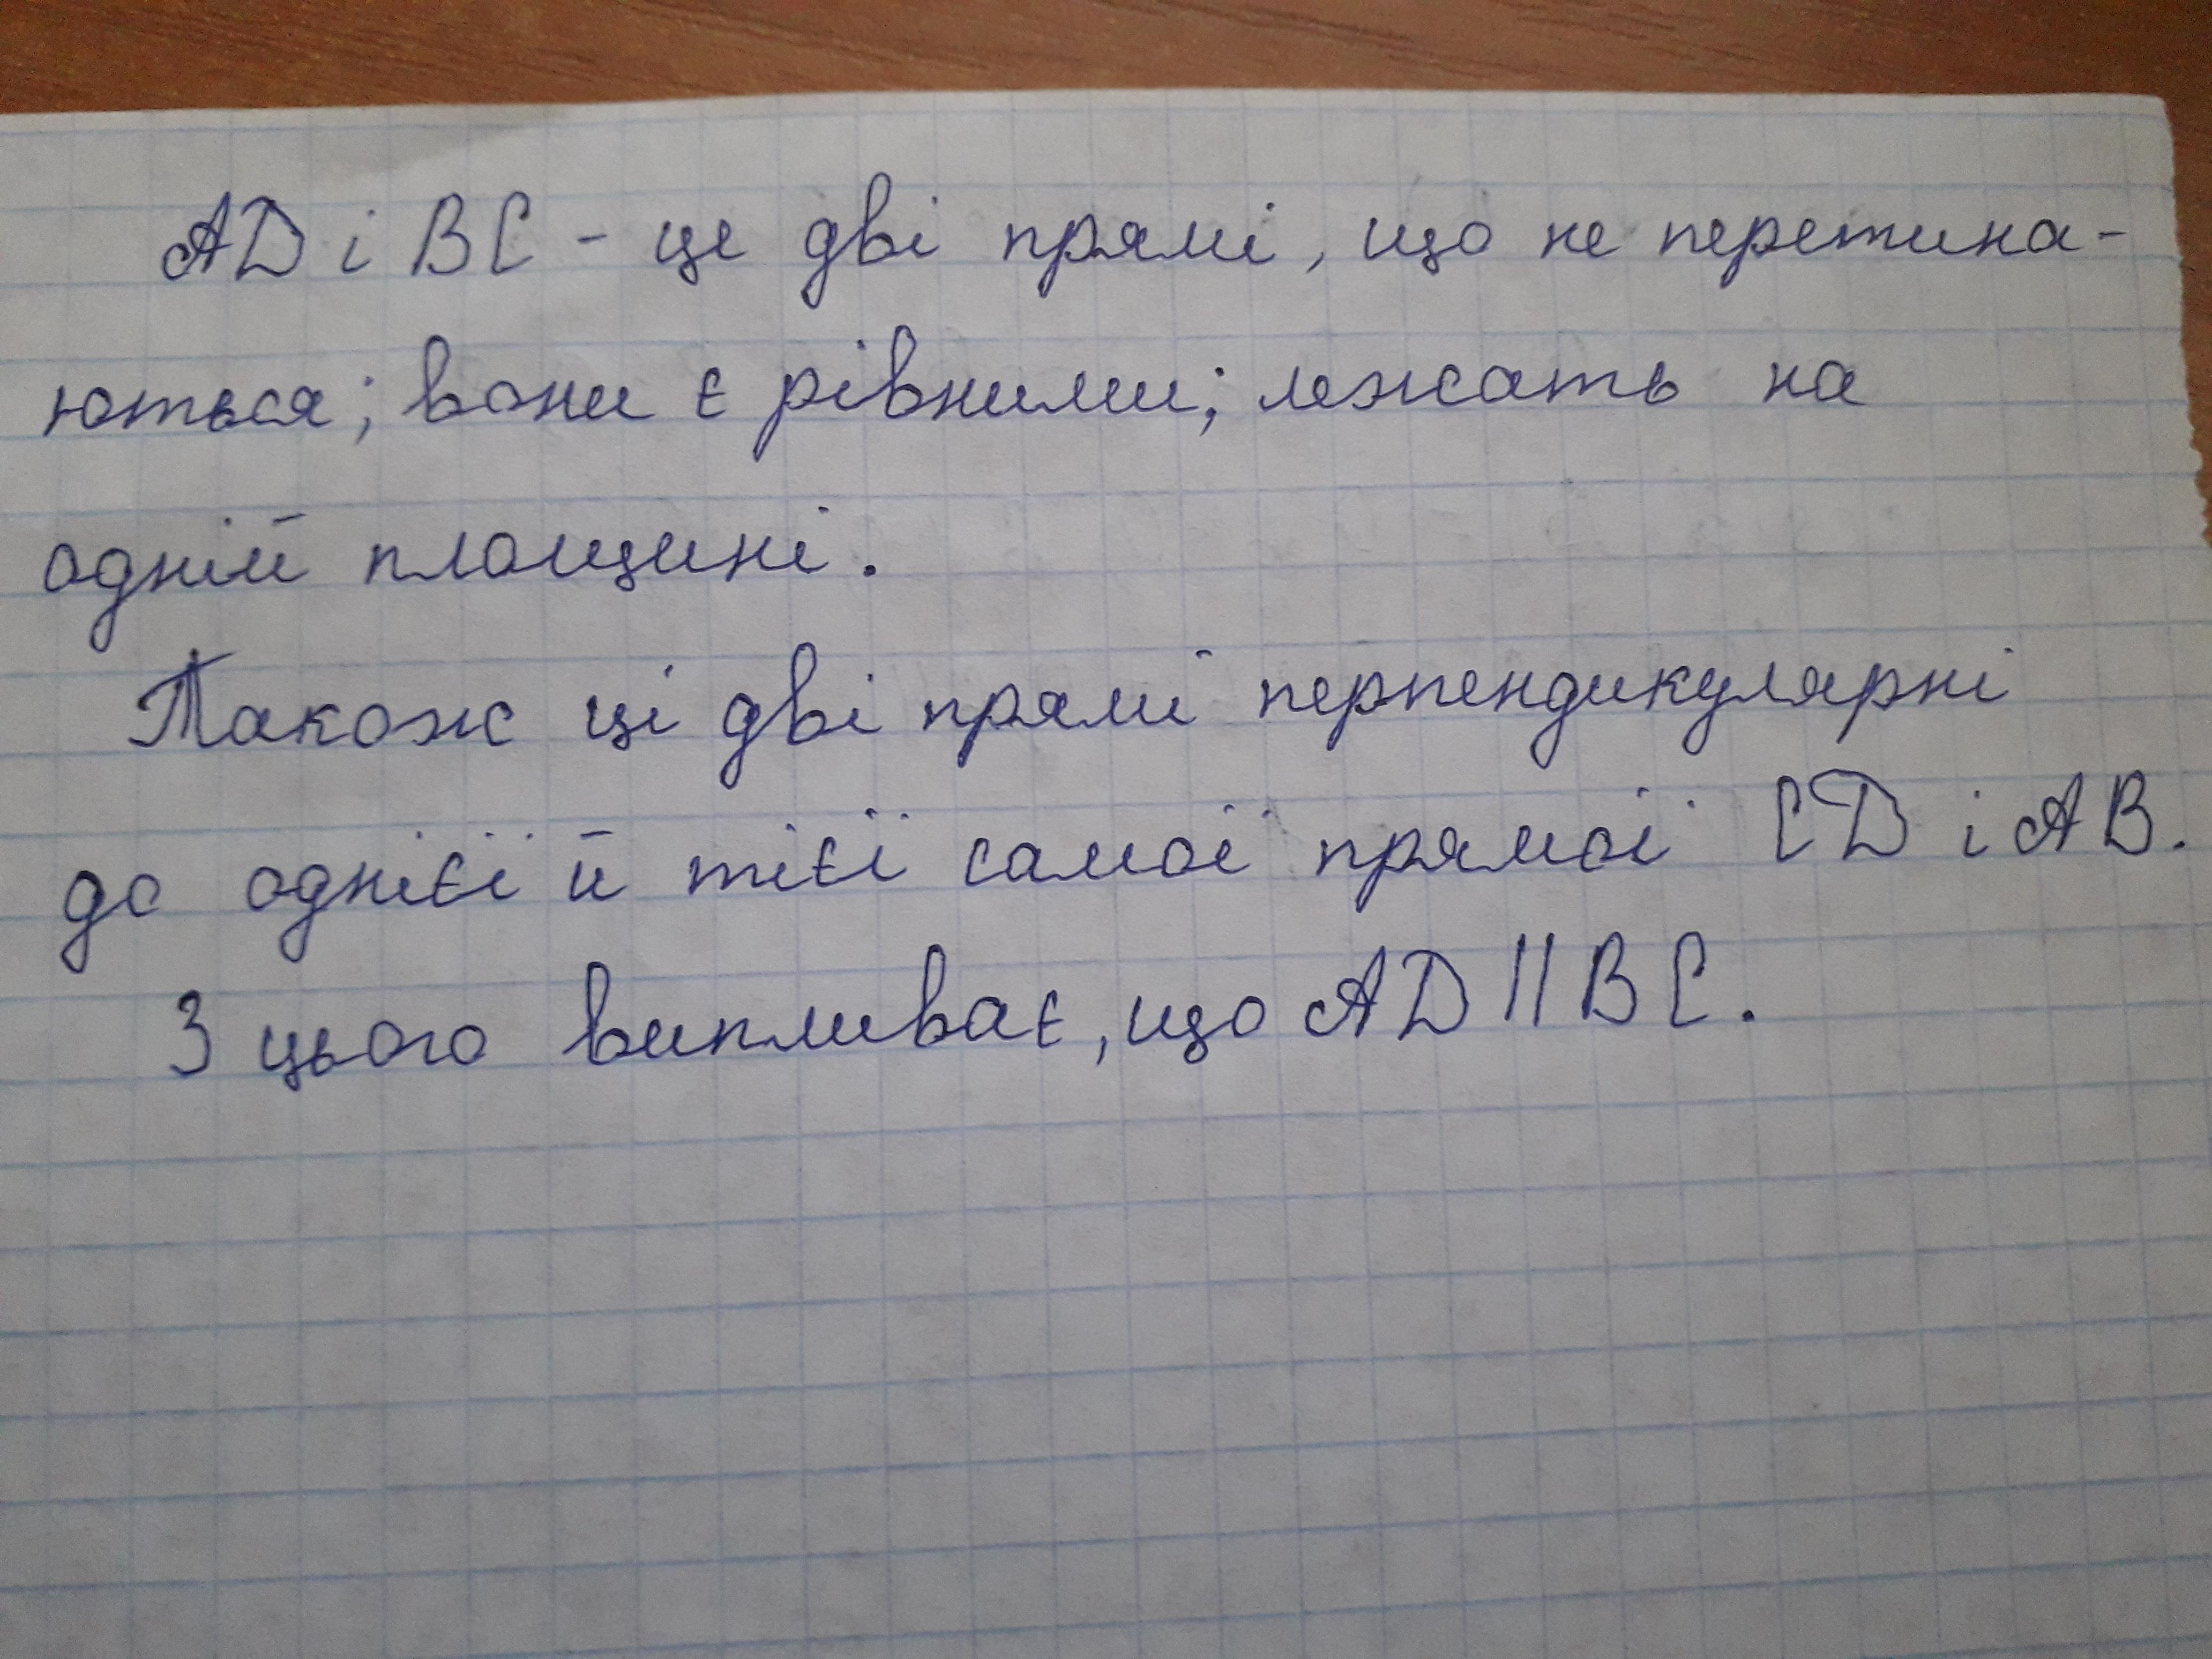 AD і BC - це дві прямі, що не перетина-
ються; вони є рівними; лежать на
одній площині.
Також ці дві прямі перпендикулярні
до однієї й тієї самої прямої CD і AB.
З цього випливає, що AD || BC.